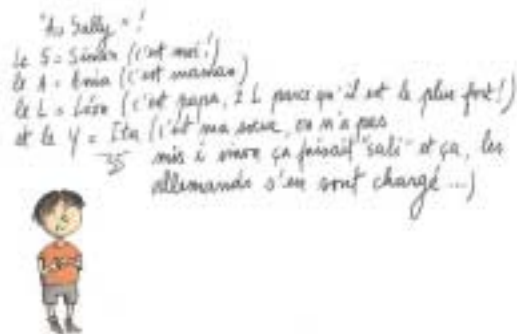 "Au Sally" !
le S = Simon (c'est moi !)
le A = Ania (c'est maman)
le L = Léon (c'est papa, 2 L parce qu'il est le plus fort !)
et le Y = Ita (c'est ma soeur, on n'a pas
mis i sinon ça faisait "sali" et ça, les
allemands s'en sont chargé ...)